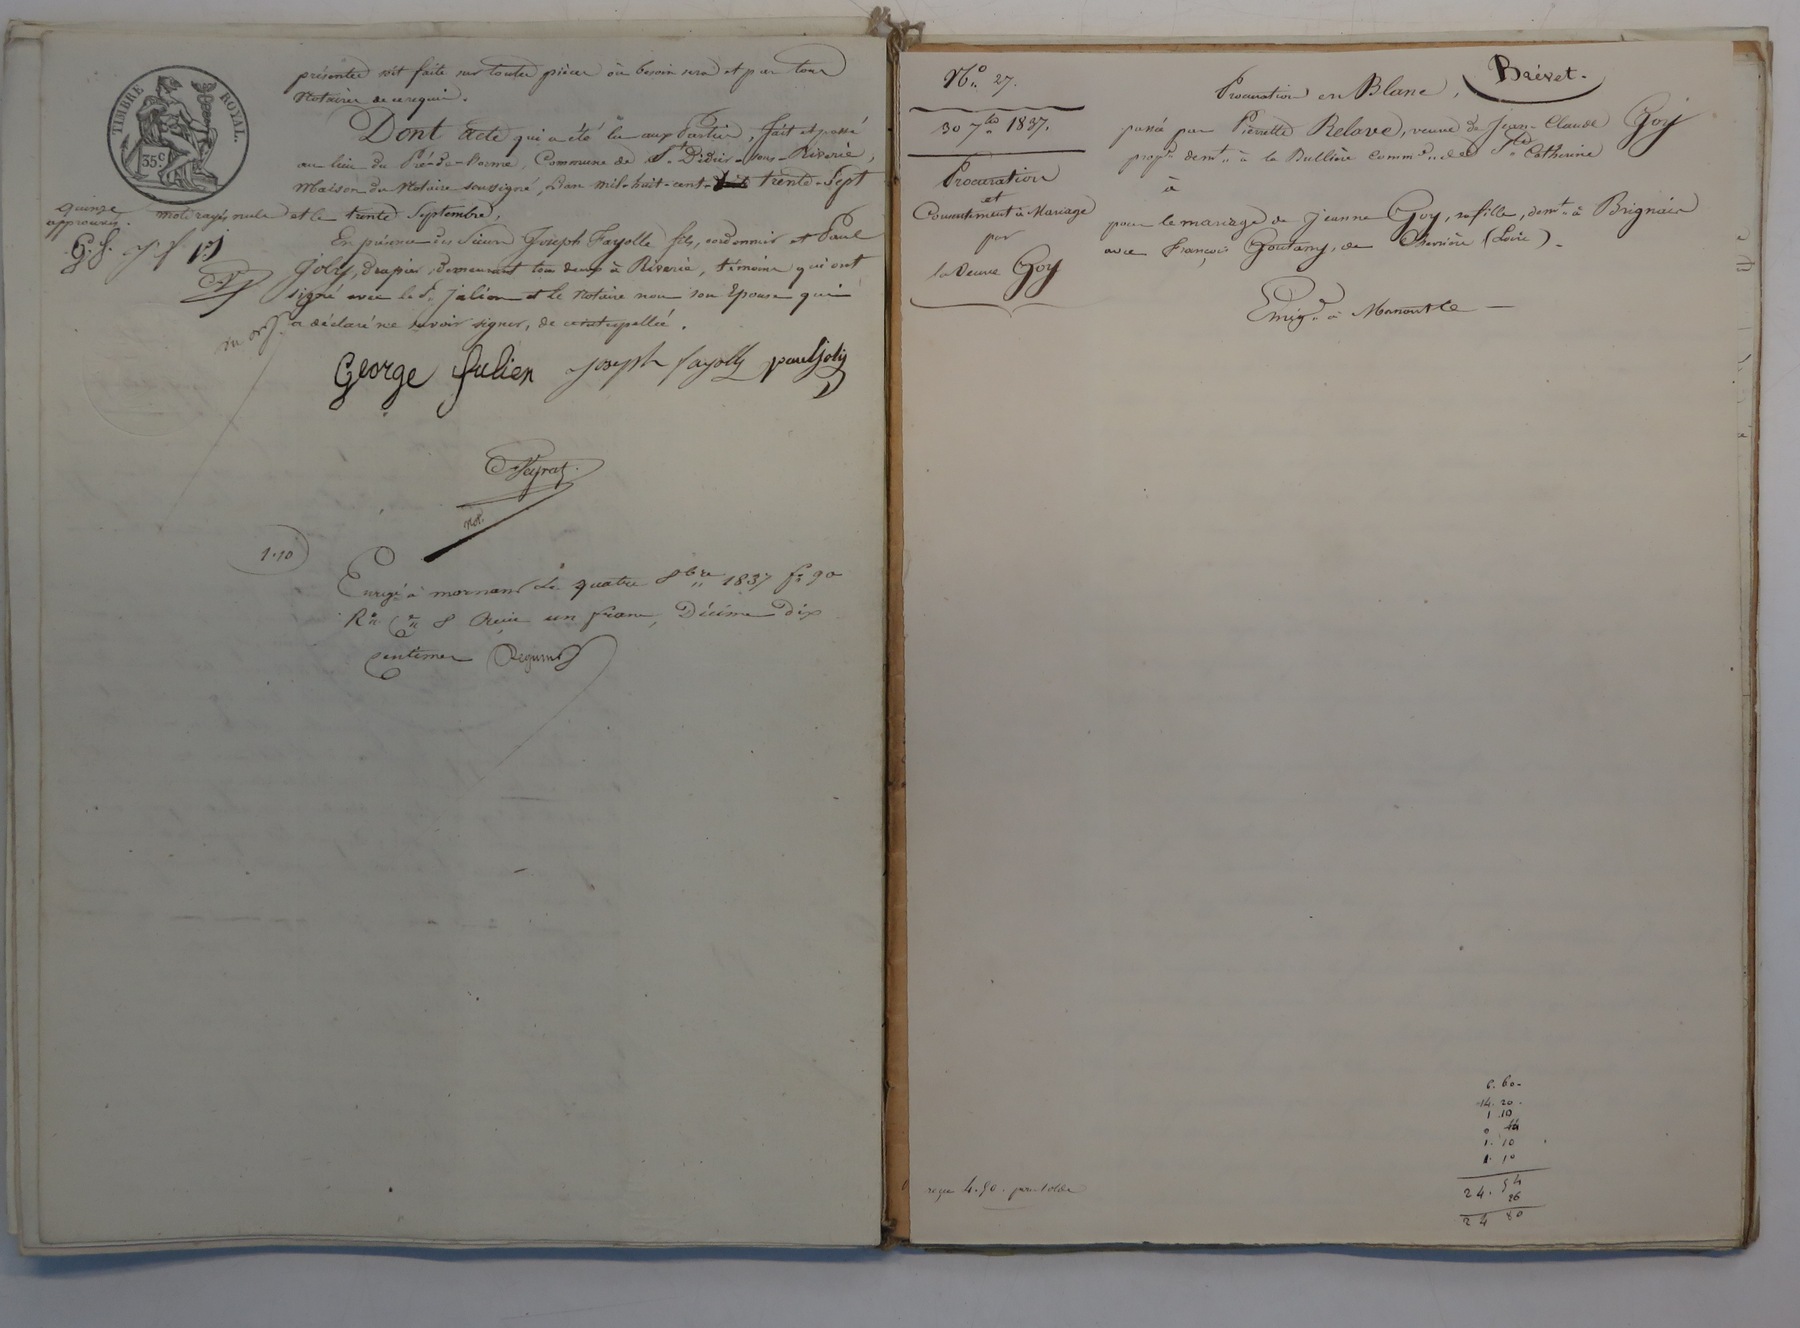 TIMBRE ROYAL.
35c
présentes soit faite sur toutes pièces où besoin sera et par tous
Notaires de ce requis.
Dont Acte qui a été lu aux Parties, fait et passé
au lieu du Pré-de-, Commune de St. Didier-sous-Riverie,
Maison du Notaire soussigné, L'an mil-huit-cent- trente-Sept
et le trente Septembre,
quinze mots rayés nuls
approuvés.
G. J. J f P. J
En présence des Sieurs Joseph Fayolle fils, cordonnier et Paul
Joly, drapier, demeurant tous deux à Riverie, témoins qui ont
signé avec led. Julien et le Notaire non son Epouse qui
a déclaré ne savoir signer, de ce interpellée.
George Julien Joseph fayolle paul joly
Peyrat
Not.
1.10
Enregé à mornant Le quatre 8bre 1837 f° 90
R° Ce 8 Reçu un franc, Décime dix
centimes
N° 27.
30 7bre 1837.
Procuration
et
Consentement à Mariage
par
la veuve Goy
Brévet.
Procuration en Blanc,
passée par Pierrette Relave, veuve de Jean-Claude Goy
propre demt. à la Bullière commune de Ste Catherine
à
pour le mariage de Jeanne Goy, sa fille, demt. à Brignais
avec François Goutany, de Chevrière (Loire).
Enreg. à
6. 60
14. 20
1 10
0 44
1. 10
1. 10
24. 54
26
24 80
reçu 4.90. pour solde